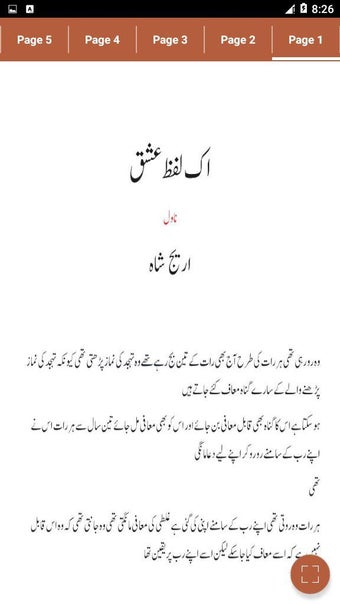 8:26
Page 5 Page 4 Page 3 Page 2 Page 1
اک لفظ عشق
ناول
اریج شاہ
وہ رو رہی تھی ہر رات کی طرح آج بھی رات کے تین بج رہے تھے وہ تہجد کی نماز پڑھتی تھی کیونکہ تہجد کی نماز
پڑھنے والے کے سارے گناہ معاف کئے جاتے ہیں
ہو سکتا ہے اس کا گناہ بھی قابل معافی بن جائے اور اس کو بھی معافی مل جائے تین سال سے ہر رات اس نے
اپنے رب کے سامنے رو رو کر اپنے لیے دعا مانگی
تھی
ہر رات وہ روتی تھی اپنے رب کے سامنے اپنی کی گئی بے غلطی کی معافی مانگتی تھی وہ جانتی تھی کہ وہ اس قابل
ہے کہ اسے معاف کیا جا سکے لیکن اسے اپنے رب پر یقین تھا